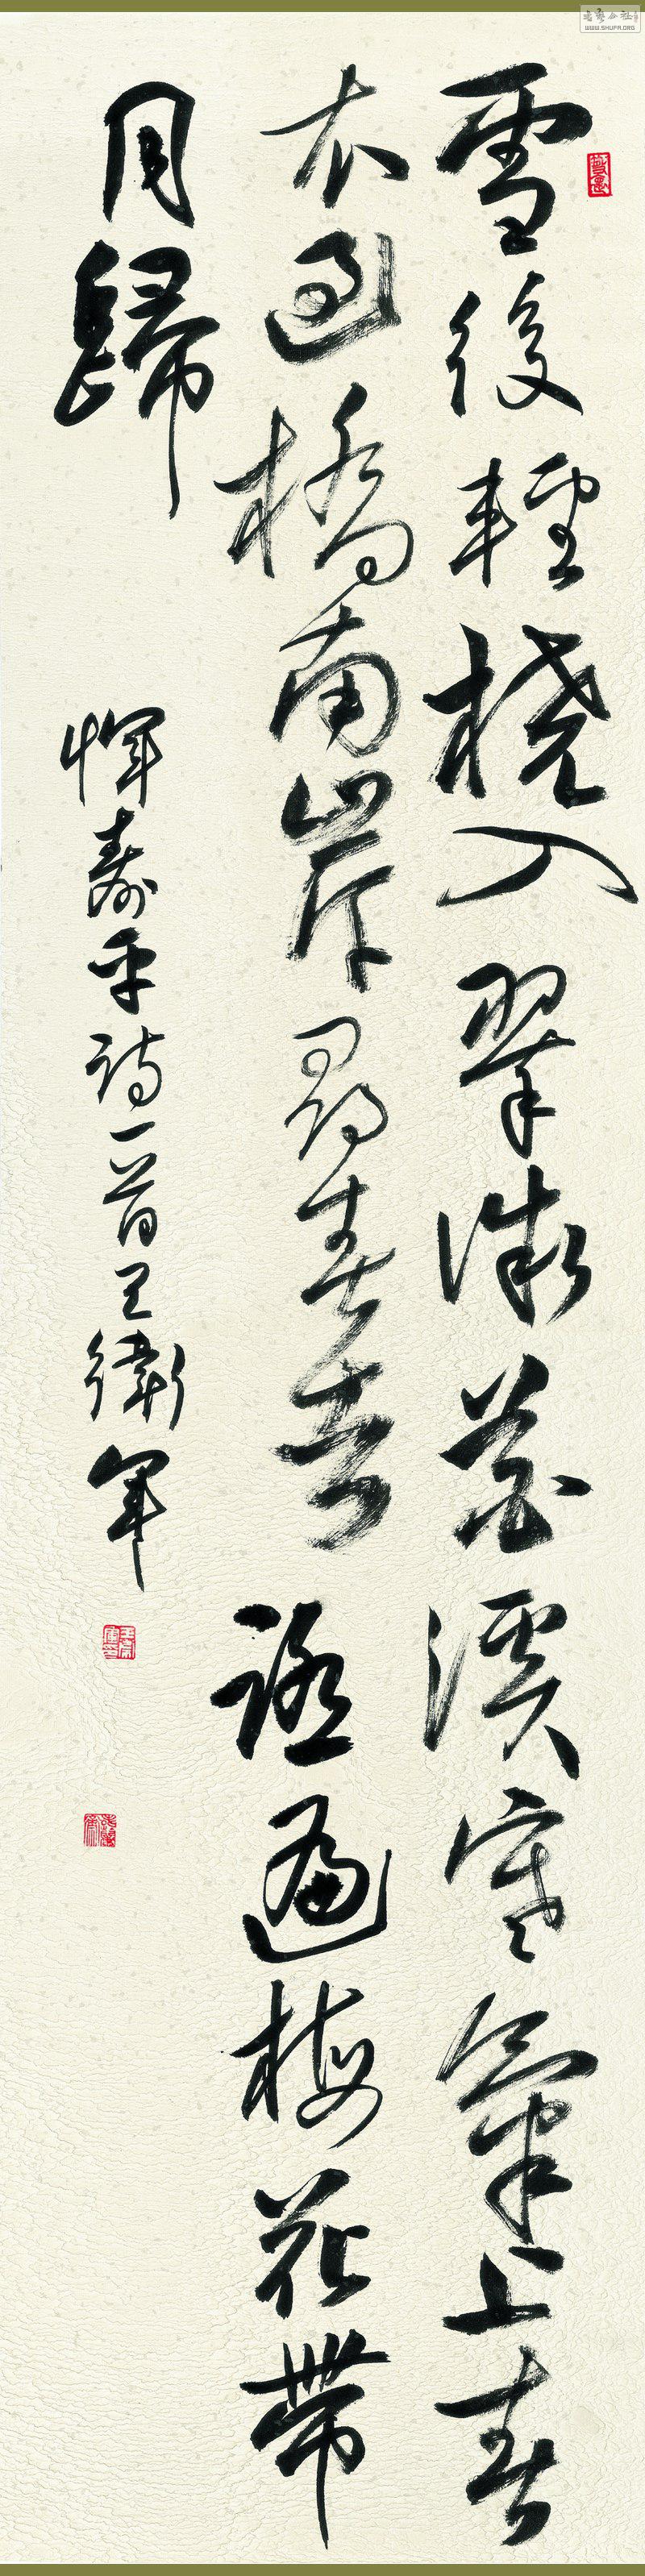 雪後輕橈入翠微花溪寒氣上春
衣過橋南岸尋春去踏遍梅花帶
月歸
惲壽平詩一首王衛軍
書藝公社
WWW.SHUFA.ORG